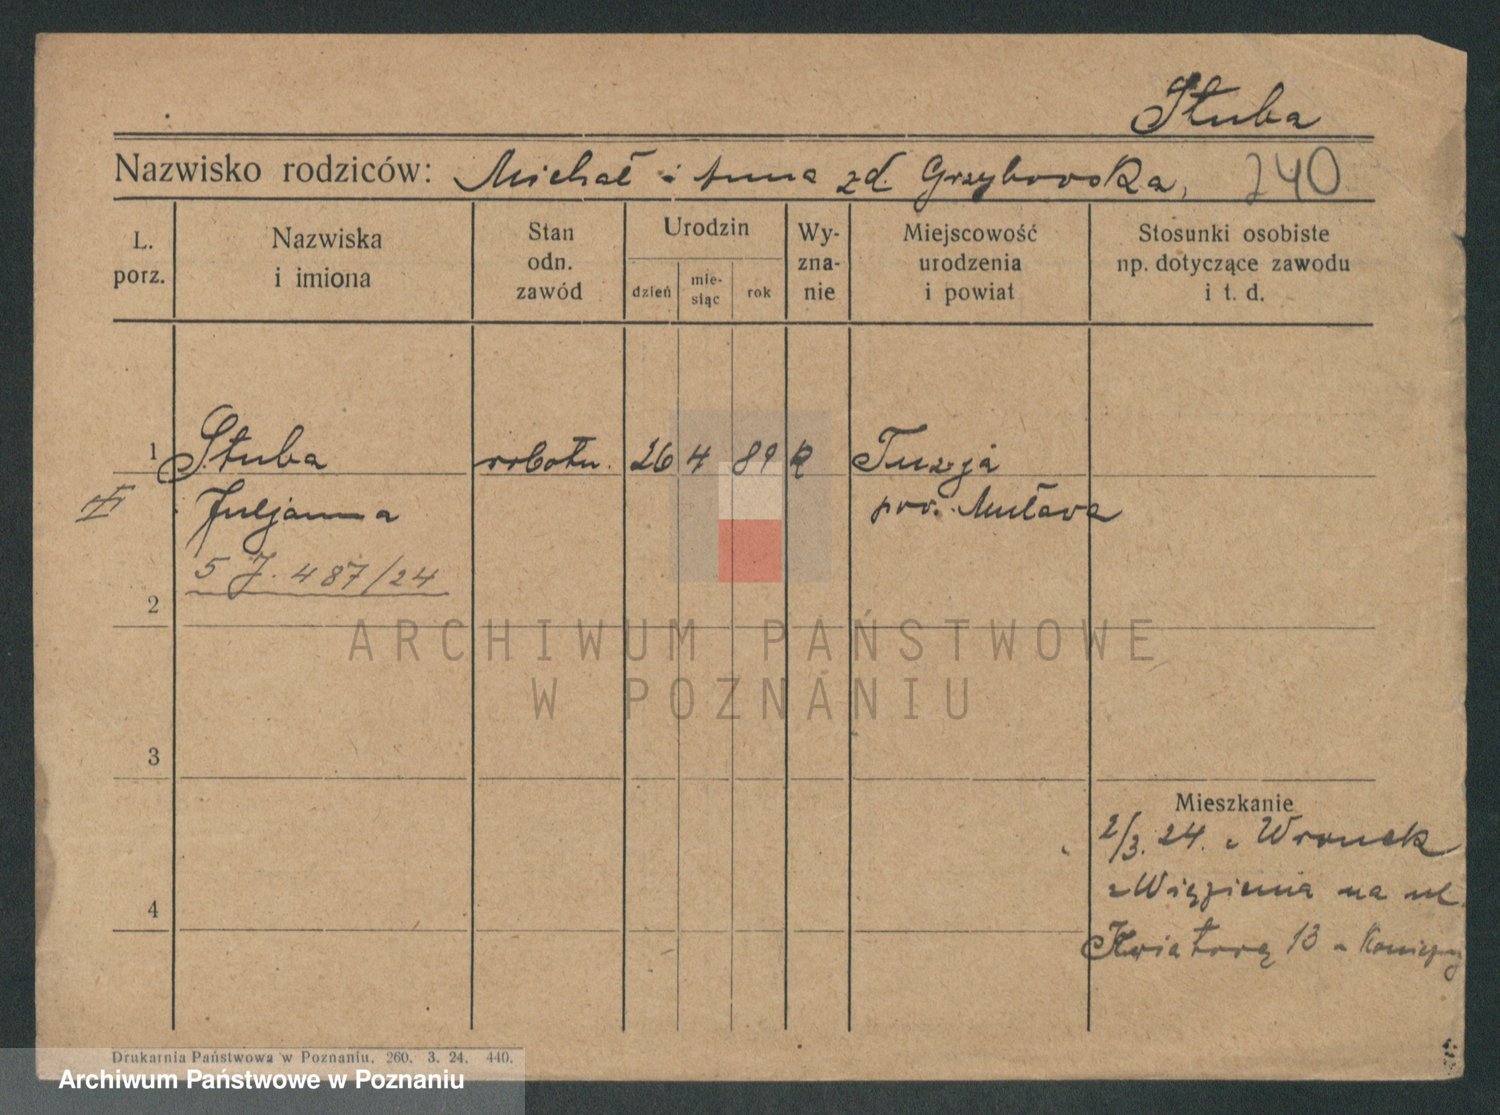 Stuba
Nazwisko rodziców: Michał i Anna zd. Grzybowska, 240
L. porz.
Nazwiska i imiona
Stan odn. zawód
Urodzin
dzień
mie-siąc
rok
Wy-zna-nie
Miejscowość urodzenia i powiat
Stosunki osobiste np. dotyczące zawodu i t. d.
1 Stuba robotn. 26 4 89 R
Juljanna pow.
5 J. 487/24
2
3
4
Mieszkanie
2/3. 24. z Wronek
z Więzienia na ul.
Kwiatową 13
ARCHIWUM PAŃSTWOWE
W POZNANIU
Drukarnia Państwowa w Poznaniu. 260. 3. 24. 440.
Archiwum Państwowe w Poznaniu